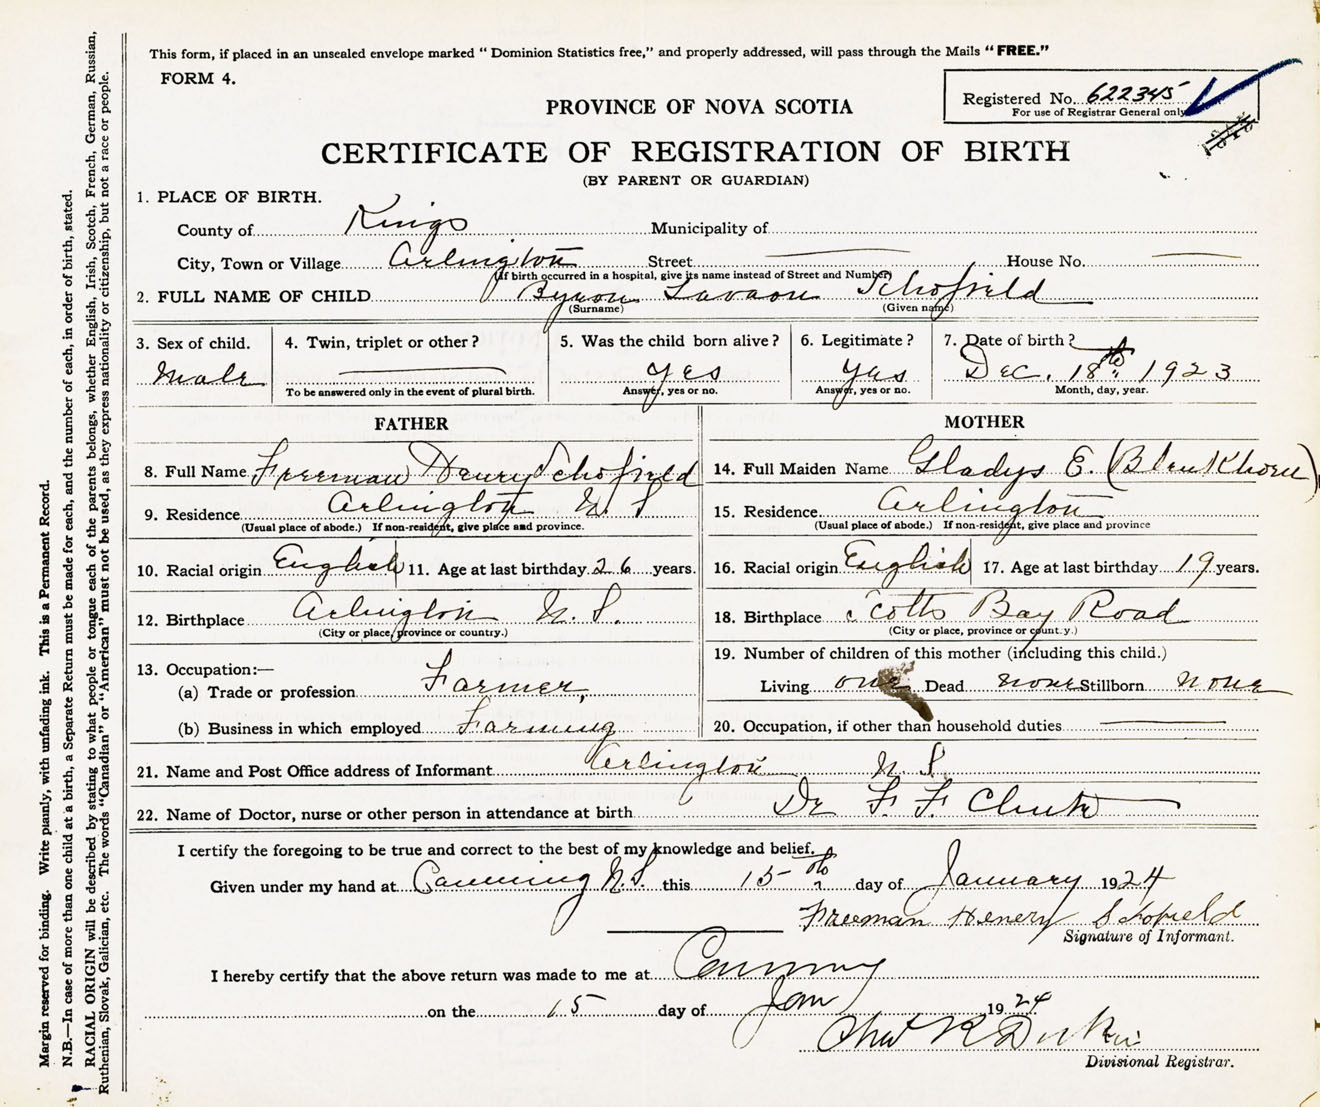 This form, if placed in an unsealed envelope marked “ Dominion Statistics free,” and properly addressed, will pass through the Mails “ FREE.”
FORM 4.
Registered No. 622345
For use of Registrar General only
PROVINCE OF NOVA SCOTIA
CERTIFICATE OF REGISTRATION OF BIRTH
(BY PARENT OR GUARDIAN)
1. PLACE OF BIRTH.
County of Kings Municipality of
City, Town or Village Arlington Street House No.
(If birth occurred in a hospital, give its name instead of Street and Number)
2. FULL NAME OF CHILD Byron Schofield
(Surname) (Given name)
3. Sex of child. Male
4. Twin, triplet or other ?
To be answered only in the event of plural birth.
5. Was the child born alive ? Yes
Answer, yes or no.
6. Legitimate ? Yes
Answer, yes or no.
7. Date of birth ?
Dec. 18th 1923
Month, day, year.
FATHER
8. Full Name Freeman Henry Schofield
9. Residence Arlington N. S
(Usual place of abode.) If non-resident, give place and province.
10. Racial origin English 11. Age at last birthday 26 years.
12. Birthplace Arlington N. S.
(City or place, province or country.)
13. Occupation:—
(a) Trade or profession Farmer,
(b) Business in which employed Farming
MOTHER
14. Full Maiden Name Gladys E. (Blenkhorn)
15. Residence Arlington
(Usual place of abode.) If non-resident, give place and province
16. Racial origin English 17. Age at last birthday 19 years.
18. Birthplace Scotts Bay Road
(City or place, province or country.)
19. Number of children of this mother (including this child.)
Living one Dead none Stillborn none
20. Occupation, if other than household duties
21. Name and Post Office address of Informant Arlington N. S.
22. Name of Doctor, nurse or other person in attendance at birth Dr F. F. Chute
I certify the foregoing to be true and correct to the best of my knowledge and belief.
Given under my hand at Canning N.S. this 15th day of January 1924
Freeman Henery Schofield
Signature of Informant.
I hereby certify that the above return was made to me at Canning
on the 15 day of Jan 1924
Divisional Registrar.
Margin reserved for binding. Write plainly, with unfading ink. This is a Permanent Record.
N.B.—In case of more than one child at a birth, a Separate Return must be made for each, and the number of each, in order of birth, stated.
RACIAL ORIGIN will be described by stating to what people or tongue each of the parents belongs, whether English, Irish, Scotch, French, German, Russian,
Ruthenian, Slovak, Galician, etc. The words “Canadian” or “American” must not be used, as they express nationality or citizenship, but not a race or people.